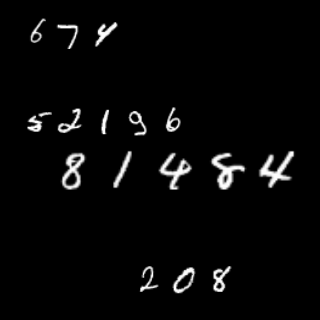 674
52196
81484
208